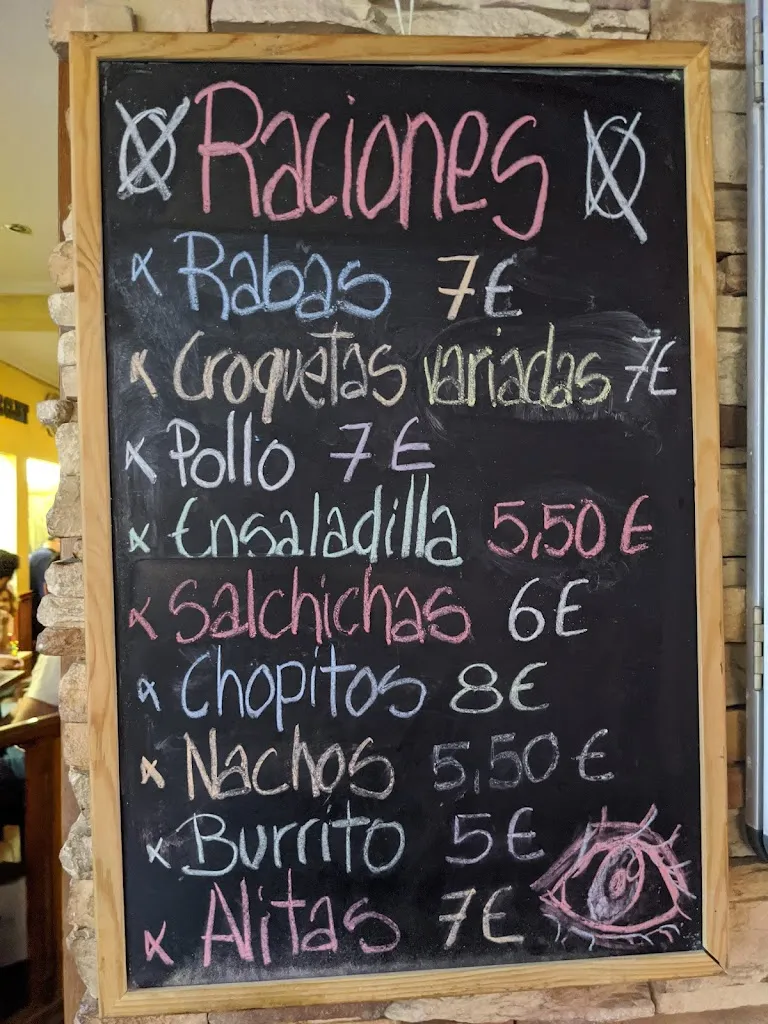 Raciones
x Rabas 7€
x Croquetas variadas 7€
x Pollo 7€
x Ensaladilla 5,50€
x Salchichas 6€
x Chopitos 8€
x Nachos 5,50€
x Burrito 5€
x Alitas 7€